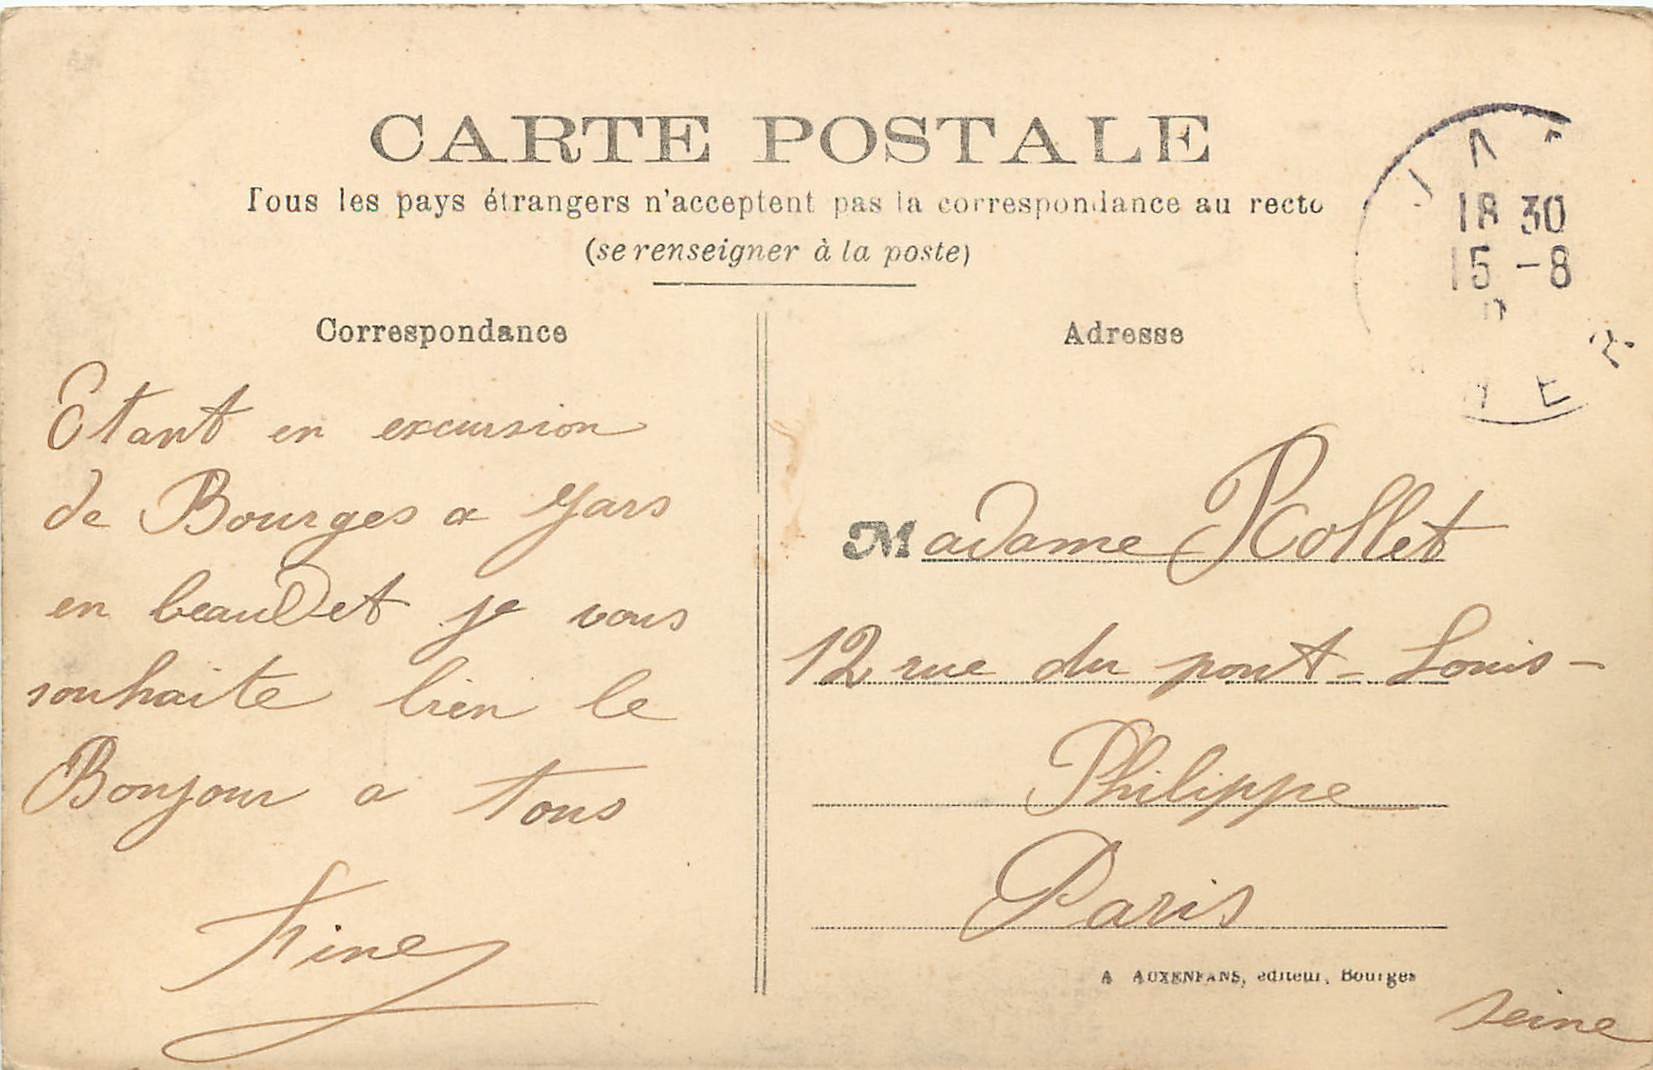 CARTE POSTALE
Tous les pays étrangers n'acceptent pas la correspondance au recto
(se renseigner à la poste)
Correspondance
Etant en excursion
de Bourges a Jars
en beaudet je vous
souhaite bien le
Bonjour a tous
Fine
Adresse
Madame Rollet
12 rue du pont-Louis-
Philippe
Paris
A AUXENFANS, éditeur, Bourges
seine
JA
18 30
15 -8
HER